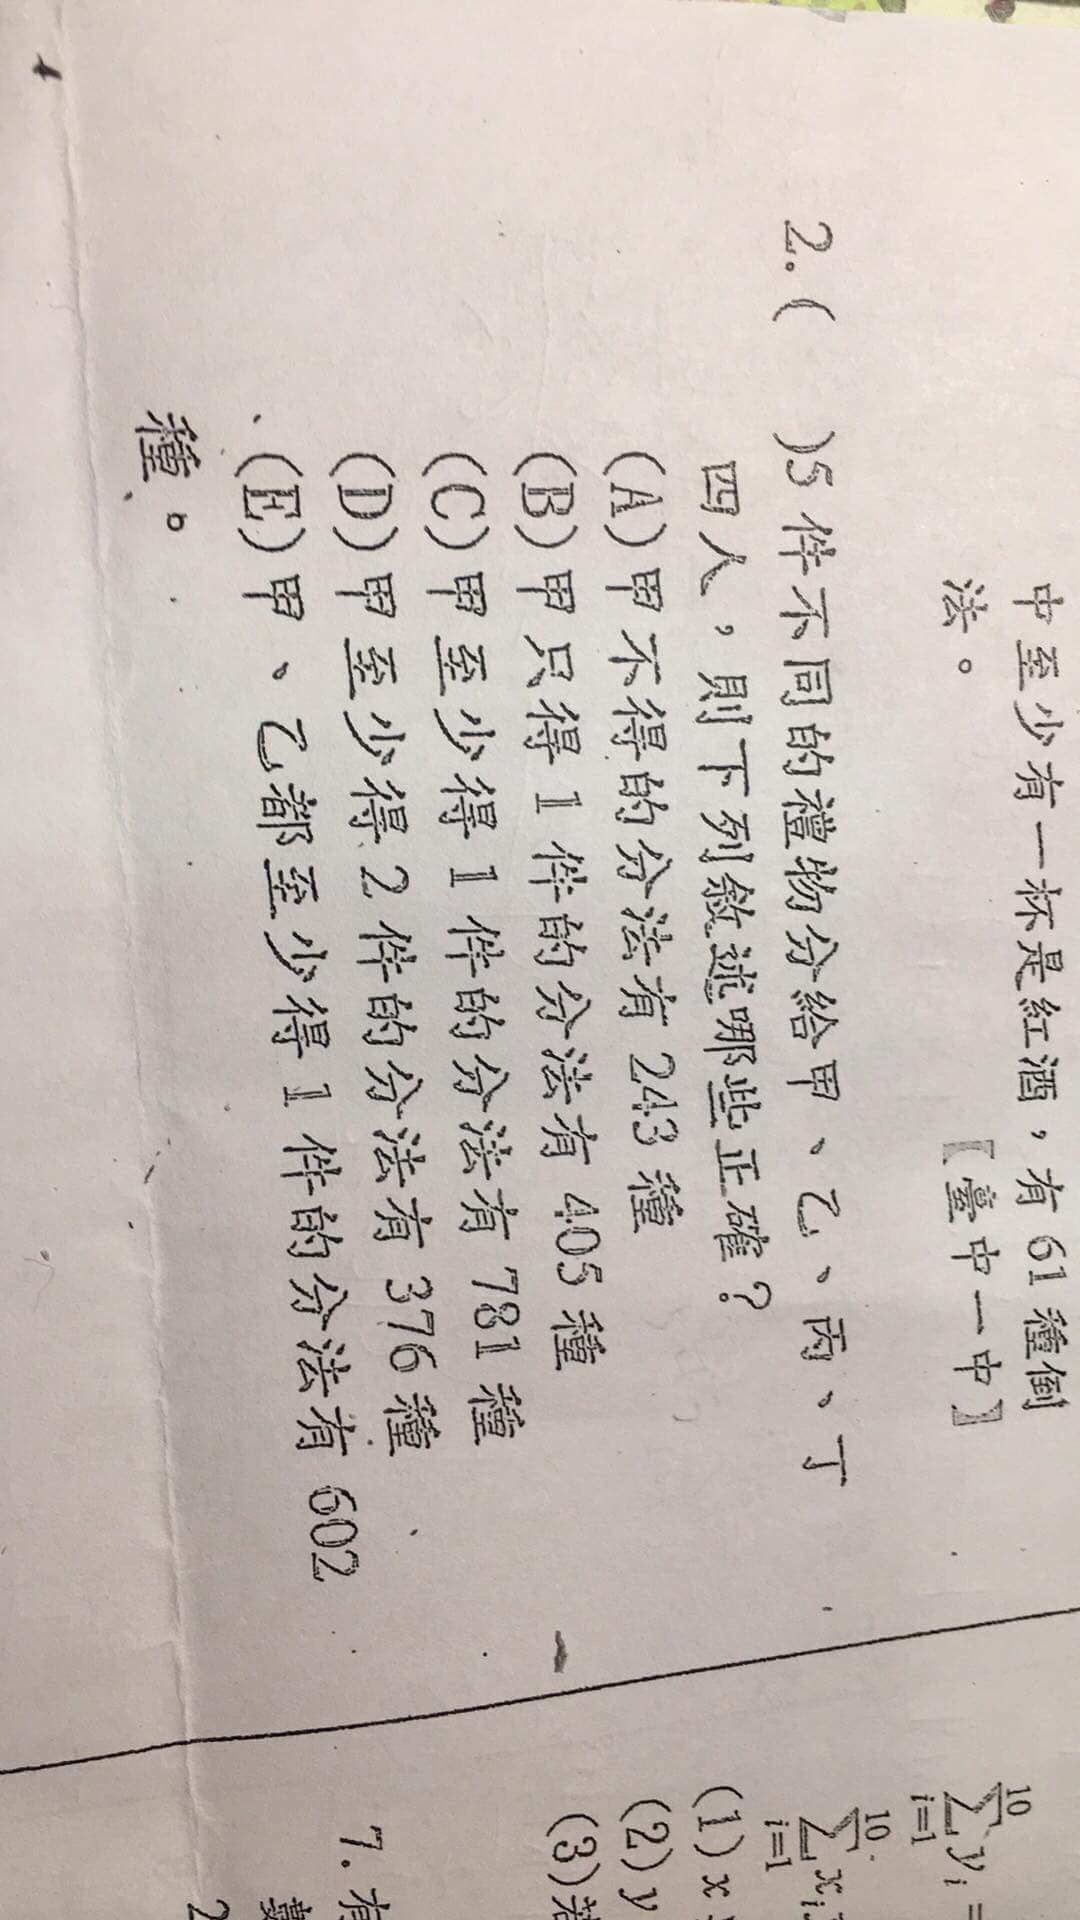 中至少有一杯是紅酒，有 61 種倒
法。 【臺中一中】
2.( )5 件不同的禮物分給甲、乙、丙、丁
四人，則下列敘述哪些正確？
(A)甲不得的分法有 243 種
(B)甲只得 1 件的分法有 405 種
(C)甲至少得 1 件的分法有 781 種
(D)甲至少得 2 件的分法有 376 種
(E)甲、乙都至少得 1 件的分法有 602
種。
10
∑ y_i =
i=1
10
∑ x_i
i=1
(1) x
(2) y
(3)若
7. 有
2